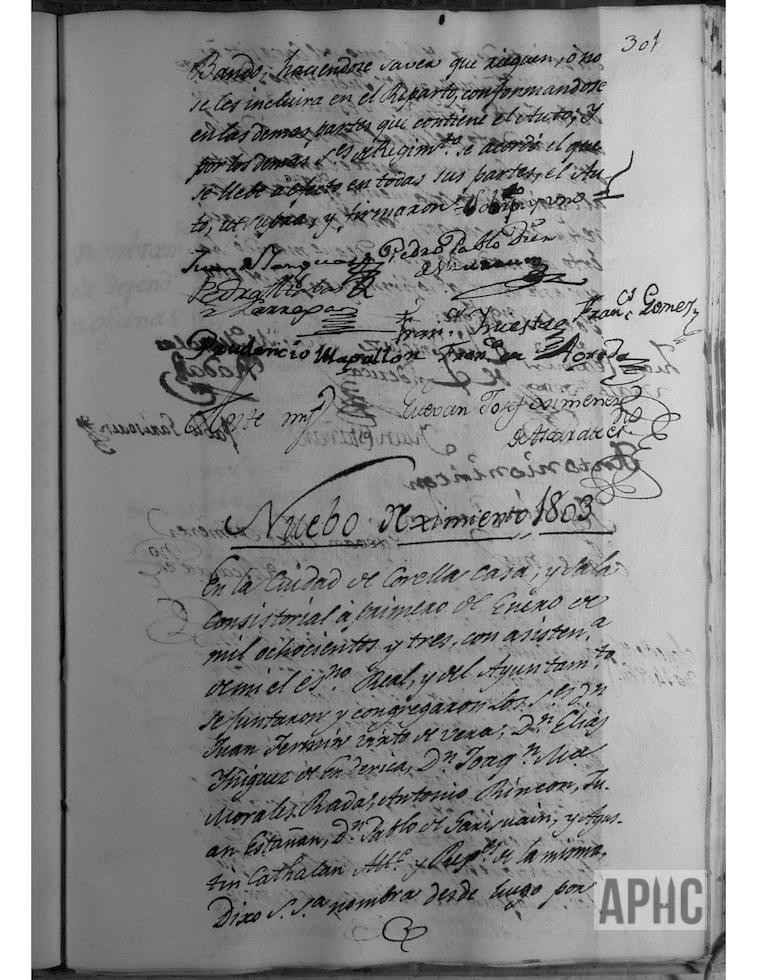 301
Bando, haciendose saver que rieguen, o no
se les incluira en el Reparto, conformandose
en las demas partes que contiene el Auto; Y
por los demas S.es de Regim.to se acordó el que
se llebe a efecto en todas sus partes, el Au-
to, ut supra, y firmaron
Pedro Pablo
Fran.co Gomez
Prudencio Fran.co
Ante mi
Estevan Josef Ximenez
de Ascarate
Nuebo Reximiento 1803
En la Ciudad de Corella Casa, y Sala
Consistorial à primero de Enero de
mil ochocientos y tres, con asisten.a
de mi el es.no Real, y del Ayuntam.to
se juntaron y congregaron los S.es D.n
Juan Fermin Virto de Vera; D.n Elias
Yñiguez de Enderica, D.n Joaq.n M.a
Morales Rada, Antonio Rincon, Ju-
an Estañan, D.n Pablo de Sanjuain, y Agus-
tin Cathalan Alc.e y Reg.es de la misma,
Dixo S. S.a nombra desde luego por
APHC